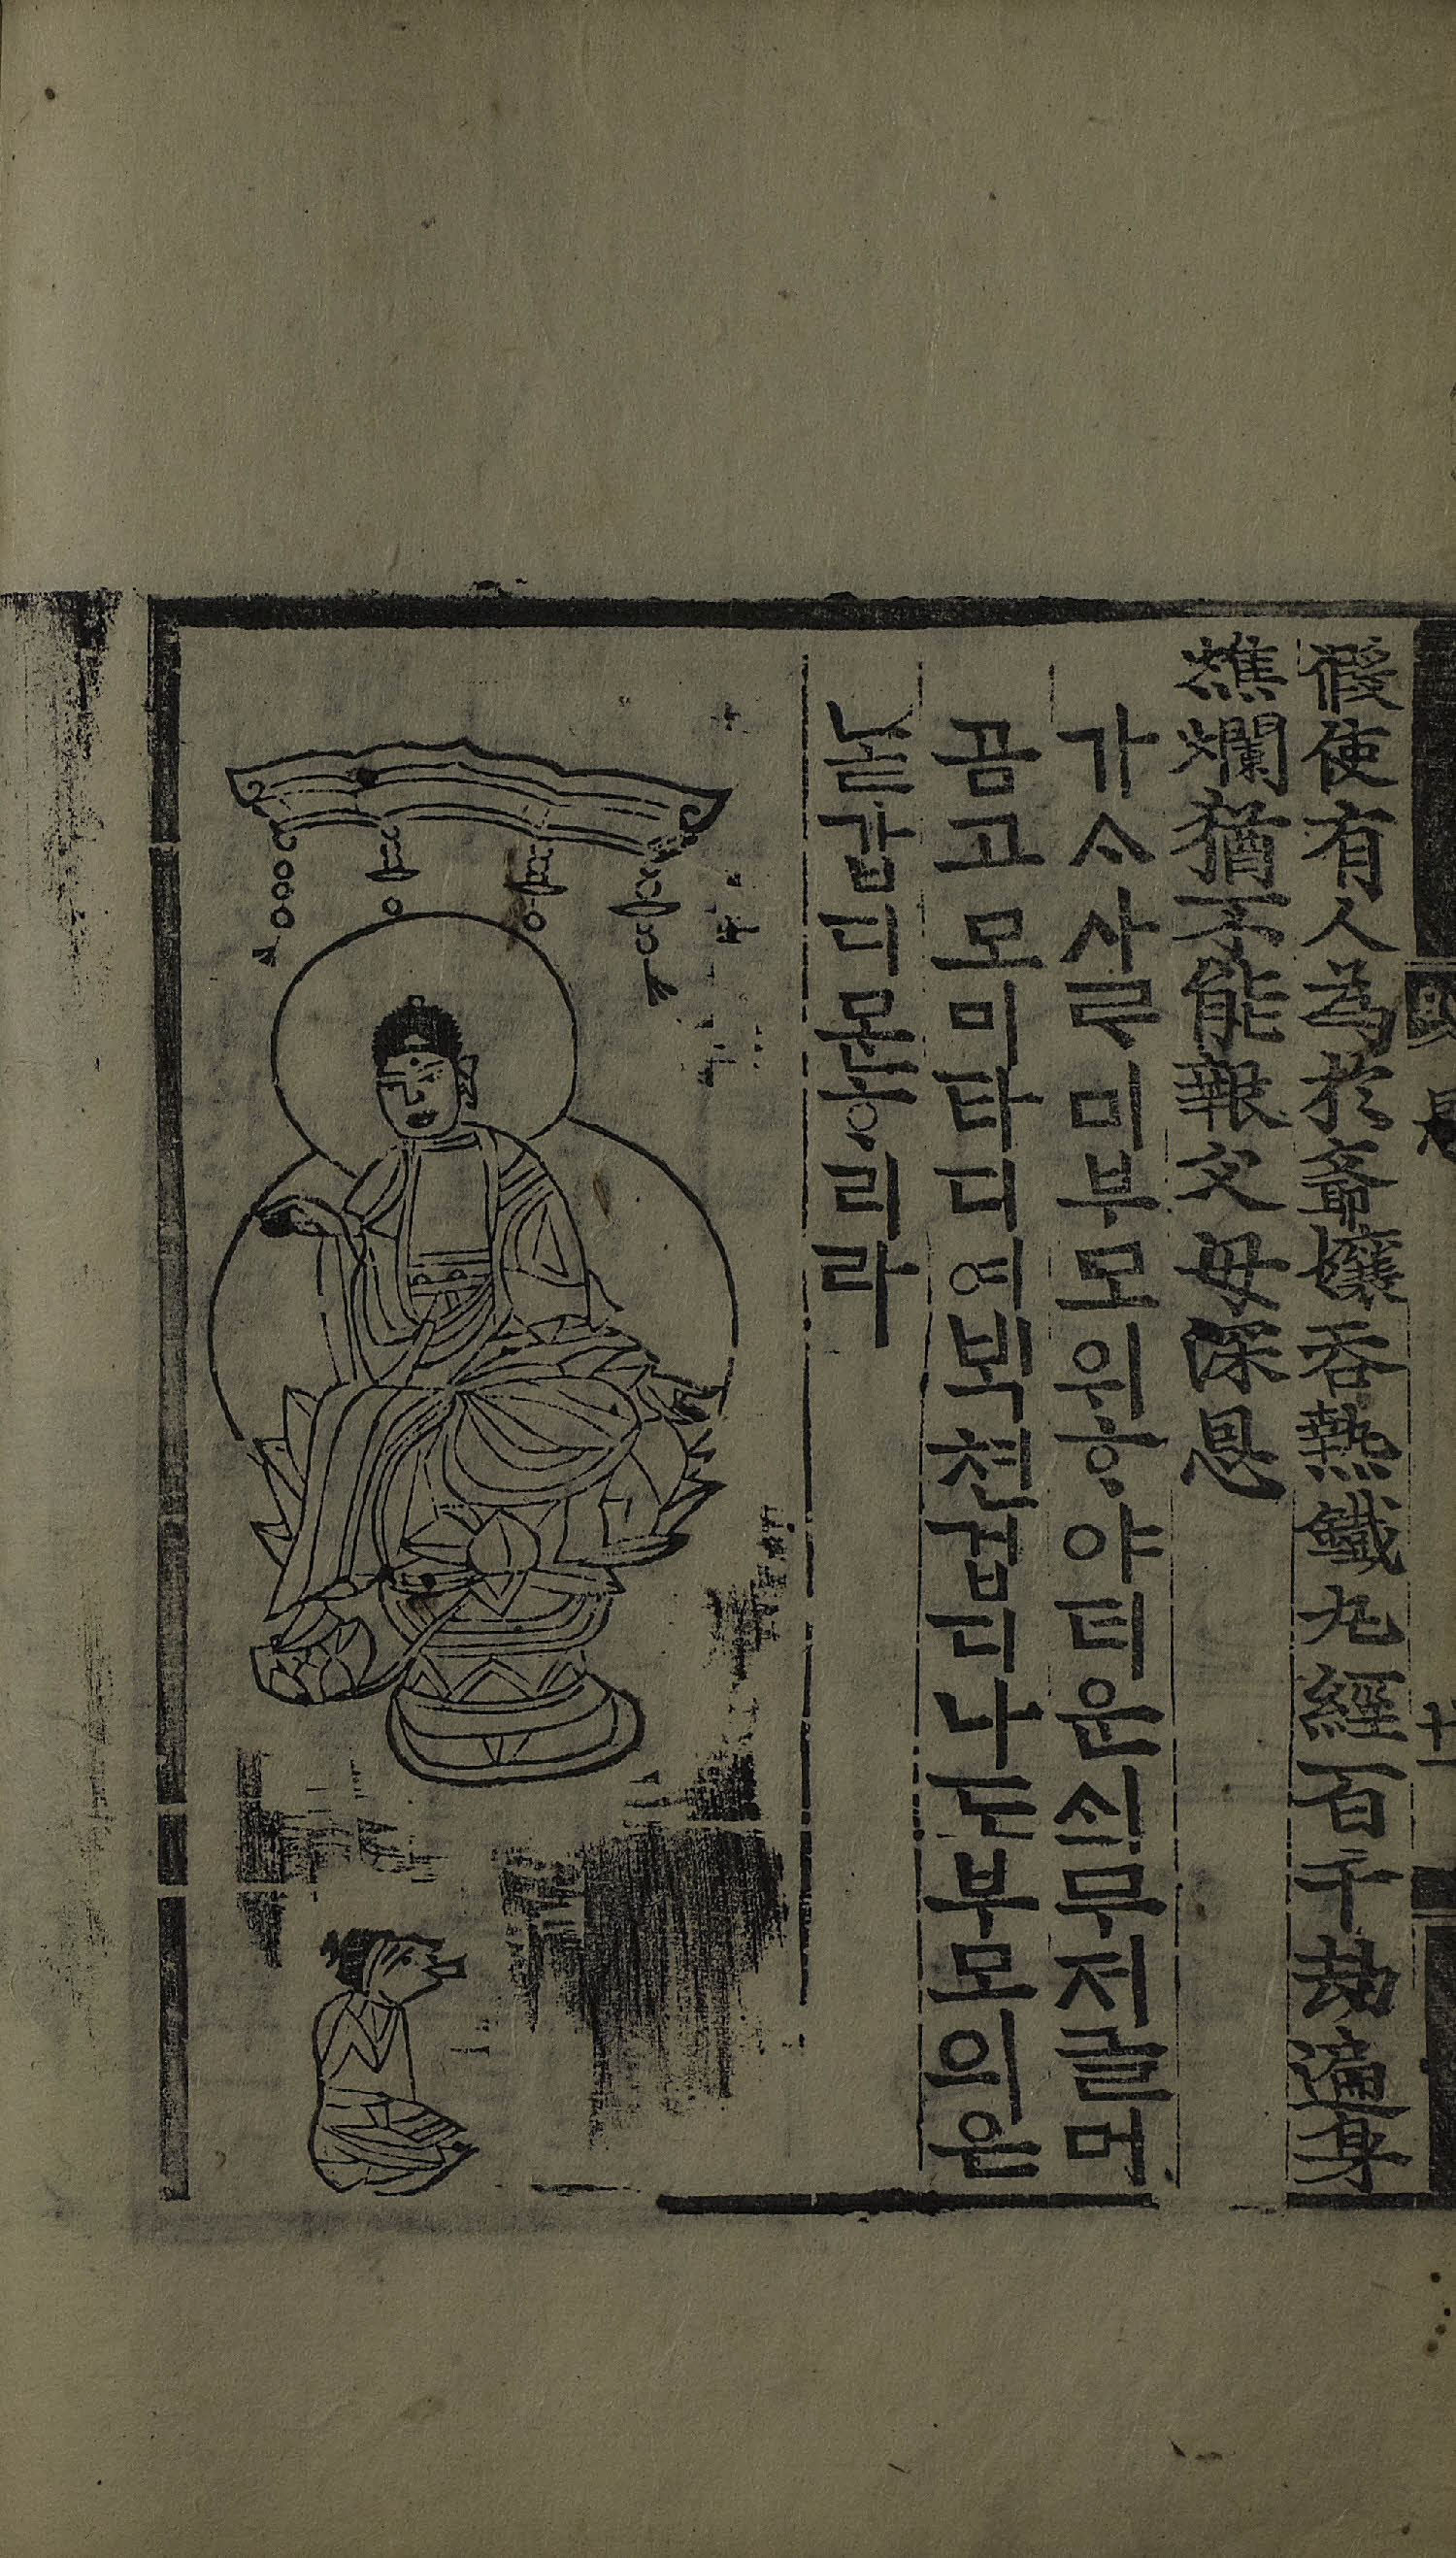 假使有人為於爺孃吞熱鐵丸經百千劫遍身
燋爛猶不能報父母深恩
가ᄉᆞ사ᄅᆞ미부모위ᄒᆞ야더운쇠무저글머
곰고모미타디여ᄇᆡᆨ쳔겁디나도부모의은
ᄂᆞᆯ갑디몯ᄒᆞ리라